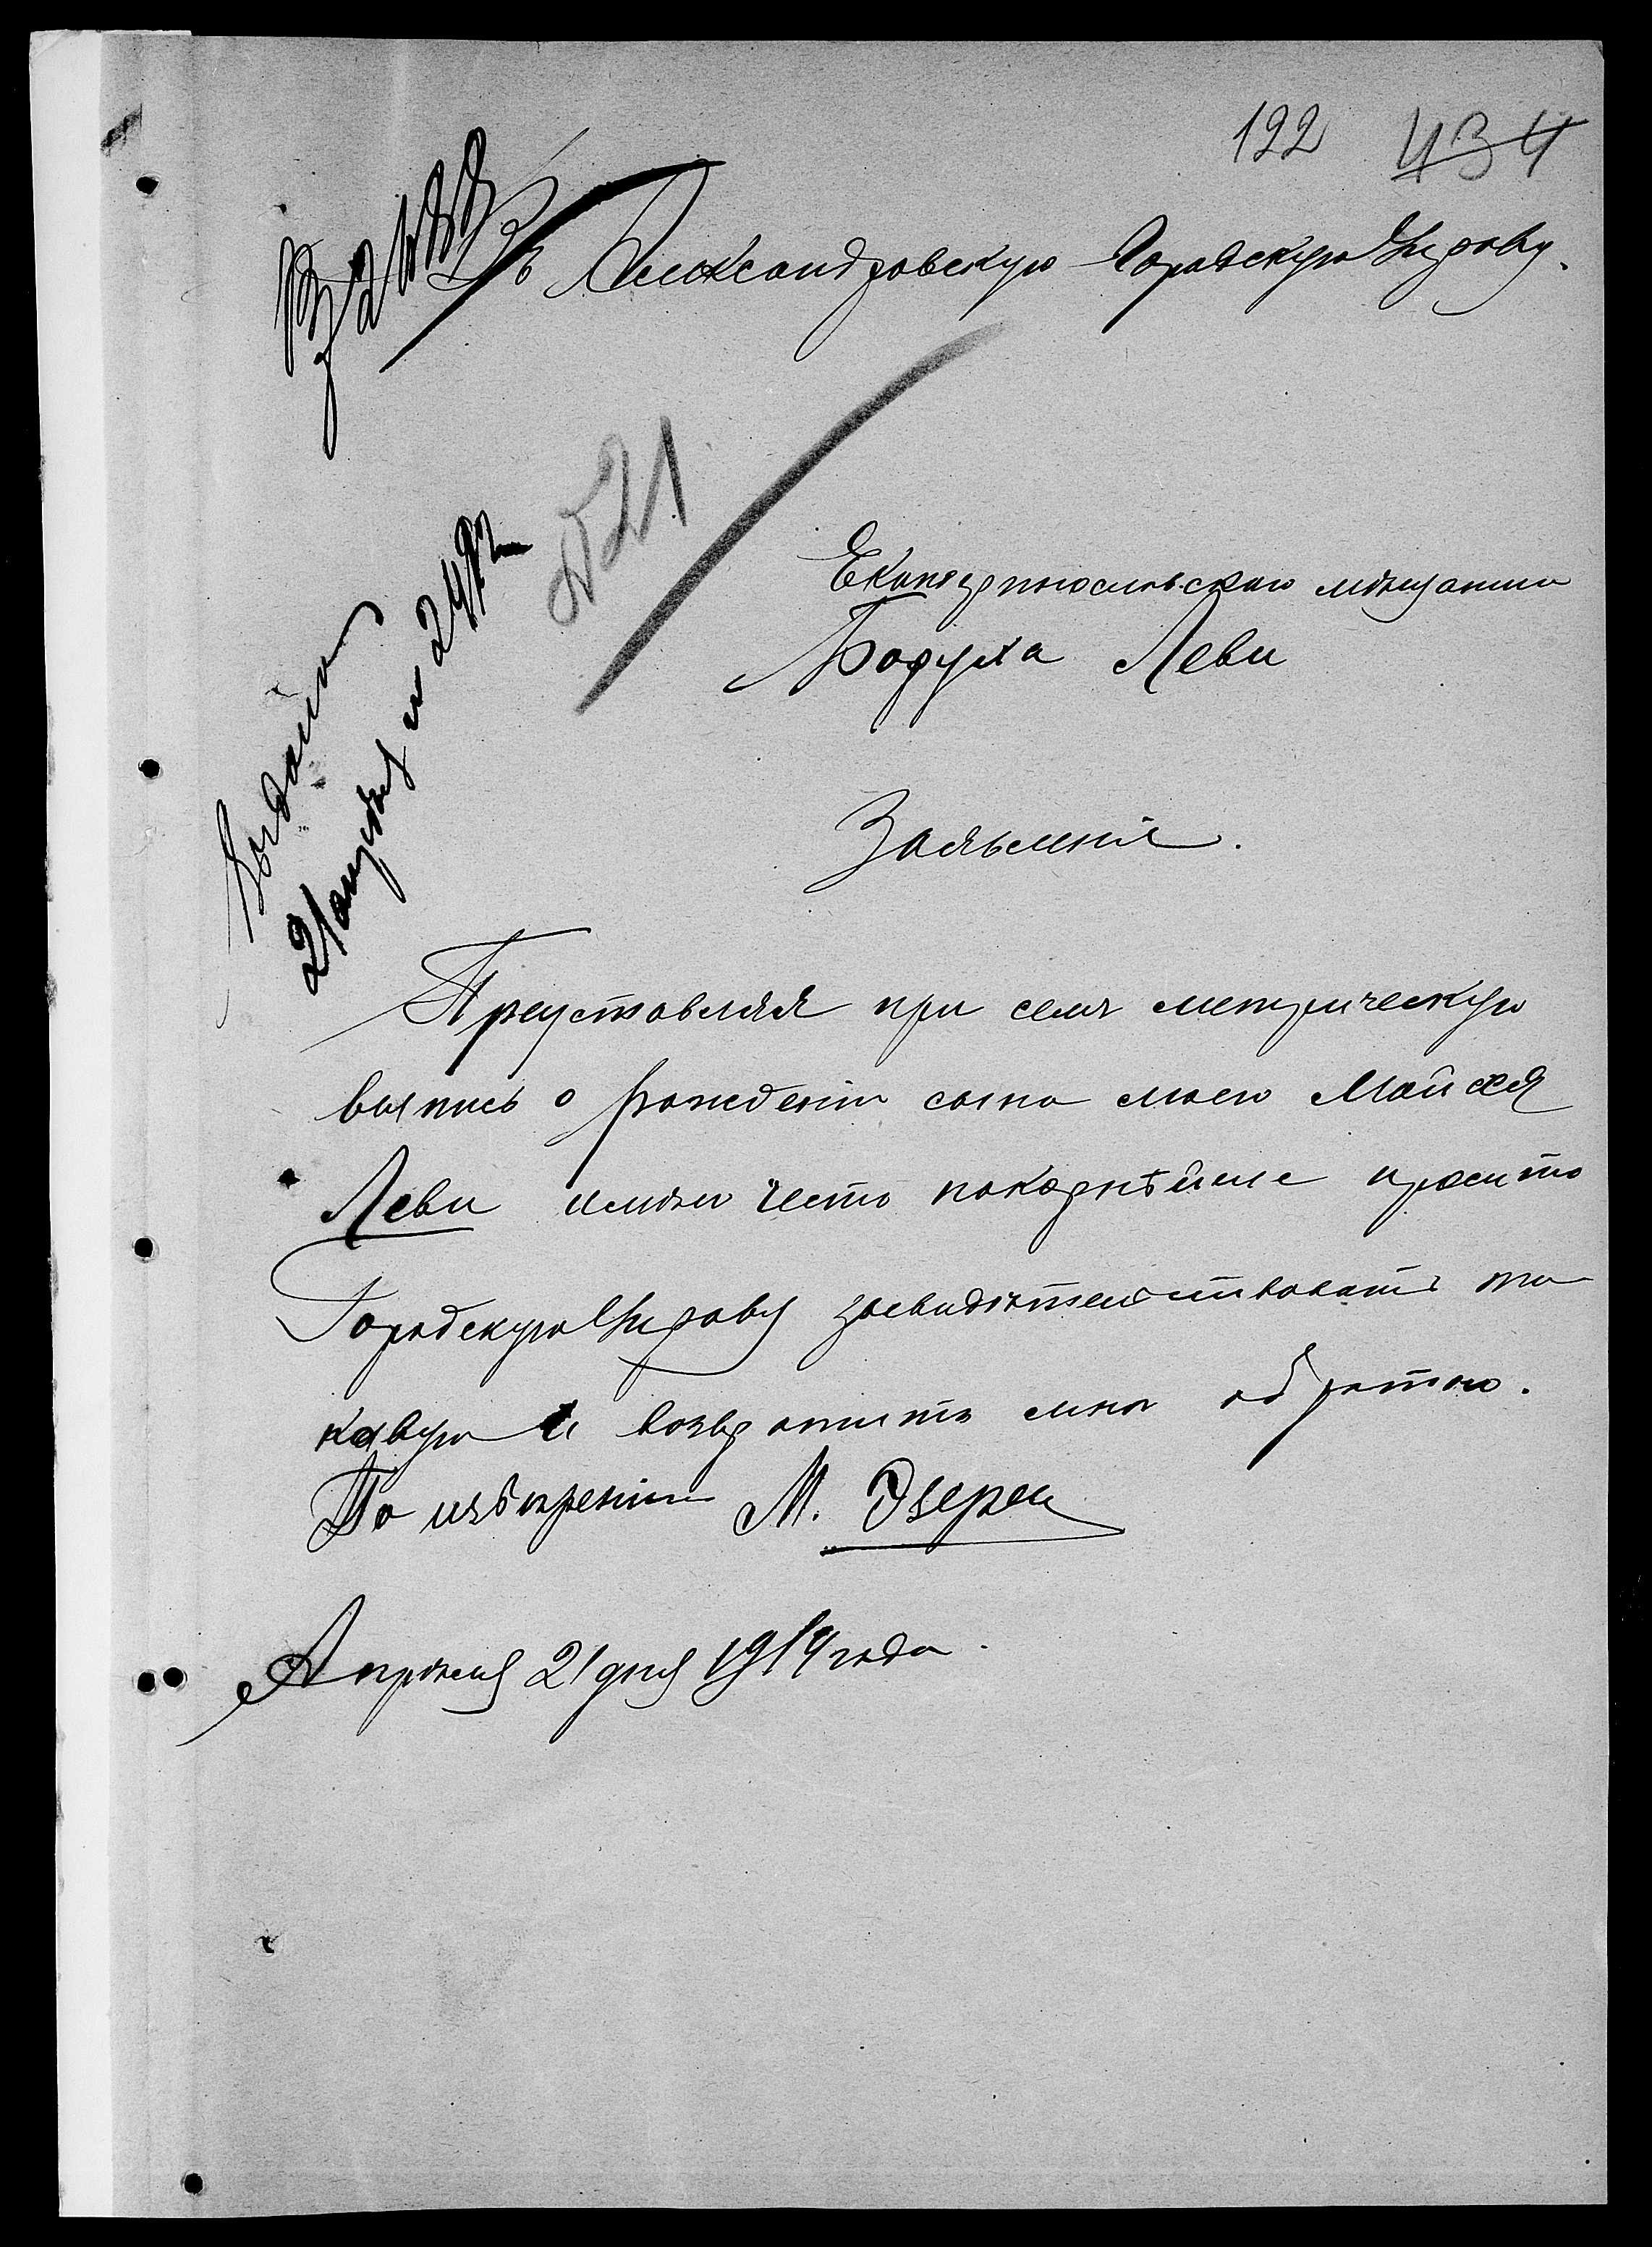 122 434
Въ Александровскую Городскую Управу.
Екатеринославскаго мѣщанина
Боруха Леви
Заявленіе.
Представляя при семъ метрическую
выпись о рожденіи сына моего Мойсея
Леви имѣю честь покорнѣйше просить
Городскую Управу засвидѣтельствовать та
ковую и возвратить мнѣ обратно.
По извѣренію М.
Апрѣля 21 дня 1914 года
521